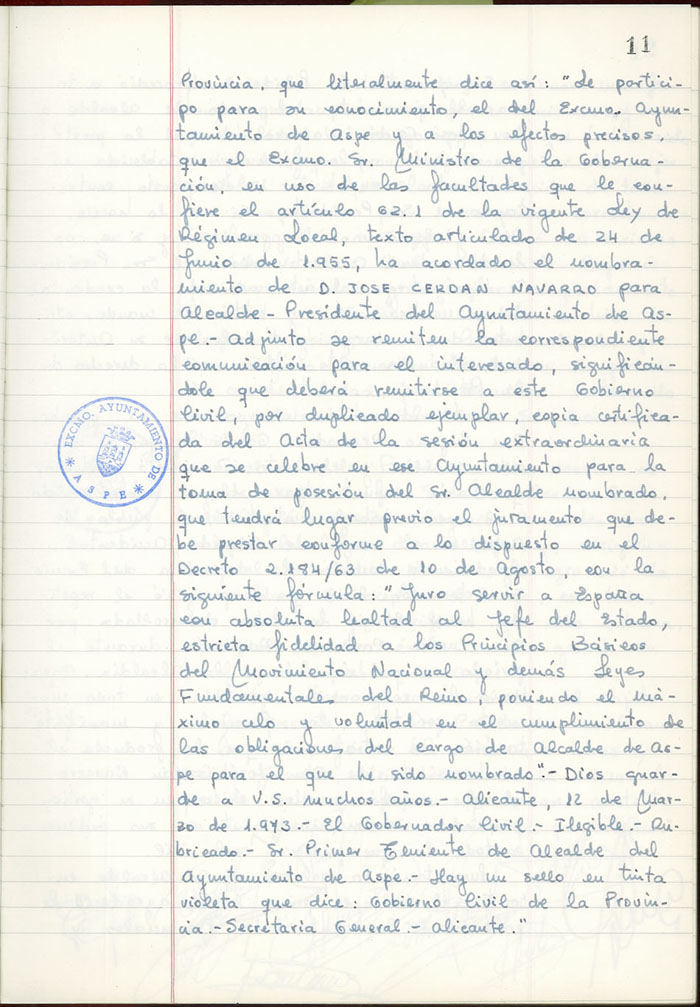 11
Provincia, que literalmente dice así: "Le partici-
po para su conocimiento, el del Excmo. Ayun-
tamiento de Aspe y a los efectos precisos,
que el Excmo. Sr. Ministro de la Goberna-
ción, en uso de las facultades que le con-
fiere el artículo 62.1 de la vigente Ley de
Régimen Local, texto articulado de 24 de
Junio de 1.955, ha acordado el nombra-
miento de D. JOSE CERDAN NAVARRO para
Alcalde-Presidente del Ayuntamiento de As-
pe.- Adjunto se remiten la correspondiente
comunicación para el interesado, significán-
dole que deberá remitirse a este Gobierno
Civil, por duplicado ejemplar, copia certifica-
da del Acta de la sesión extraordinaria
que se celebre en ese Ayuntamiento para la
toma de posesión del Sr. Alcalde nombrado,
que tendrá lugar previo el juramento que de-
be prestar conforme a lo dispuesto en el
Decreto 2.184/63 de 10 de Agosto, con la
siguiente fórmula: "Juro servir a España
con absoluta lealtad al Jefe del Estado,
estricta fidelidad a los Principios Básicos
del Movimiento Nacional y demás Leyes
Fundamentales del Reino, poniendo el má-
ximo celo y voluntad en el cumplimiento de
las obligaciones del cargo de Alcalde de As-
pe para el que he sido nombrado".- Dios guar-
de a V.S. muchos años.- Alicante, 12 de Mar-
zo de 1.973.- El Gobernador Civil.- Ilegible.- Ru-
bricado.- Sr. Primer Teniente de Alcalde del
Ayuntamiento de Aspe.- Hay un sello en tinta
violeta que dice: Gobierno Civil de la Provin-
cia.- Secretaria General.- Alicante."
EXCMO. AYUNTAMIENTO DE
* ASPE *